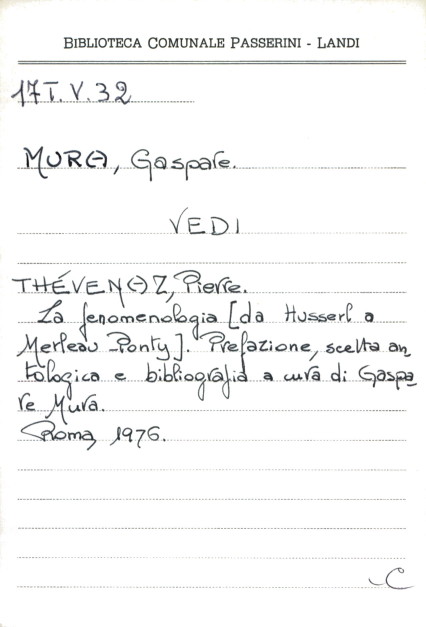 BIBLIOTECA COMUNALE PASSERINI - LANDI
17 T. V. 32
MURA, Gaspare.
VEDI
THÉVENAZ, Pierre.
La fenomenologia [da Husserl a
Merleau-Ponty]. Prefazione, scelta an
tologica e bibliografia a cura di Gaspa
re Mura.
Roma, 1976.
C